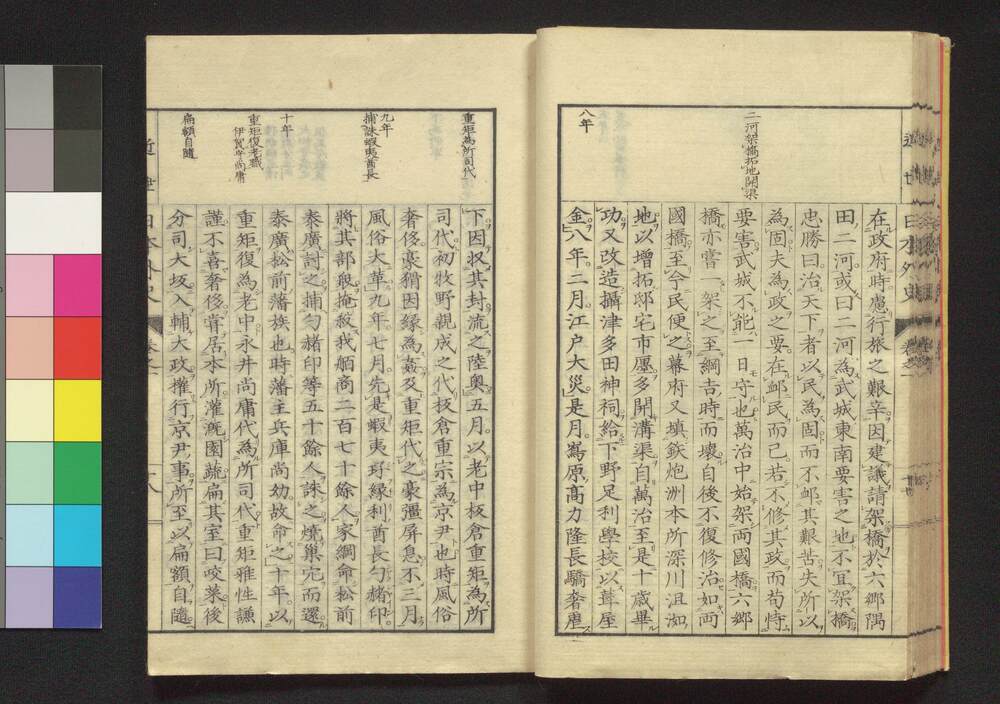 二河架橋拓地開渠
八年
在政府時慮行旅之艱辛因建議請架橋於六郷隅
田二河或曰二河為武城東南要害之地不宜架橋
忠勝曰治天下者以民為固而不卹其艱苦失所以
為固夫為政之要在卹民而已若不修其政而苟恃
要害武城不能一日守也萬治中始架両國橋六郷
橋亦嘗一架之至綱吉時而壊自後不復修治如両
國橋至今民便之幕府又填鉄炮洲本所深川沮洳
地以増拓邸宅市廛多開溝渠自萬治至是十歳畢
功又改造攝津多田神祠給下野足利學校以葺屋
金八年二月江戸大災是月嶌原高力隆長驕奢虐
重矩為所司代
九年
捕誅蝦夷酋長
十年
重矩復老職
伊賀守尚庸
扁額自隨
下因収其封流之陸奥五月以老中板倉重矩為所
司代初牧野親成之代板倉重宗為京尹也時風俗
奢侈豪猾因縁為姦及重矩代之豪彊屏息不三月
風俗大革九年七月先是蝦夷玗縁利酋長勺猪印
將其部衆掩殺我舶商二百七十餘人家綱命松前
泰廣討之捕勺猪印等五十餘人誅之焼巣穴而還
泰廣松前藩族也時藩主兵庫尚幼故命之十年以
重矩復為老中永井尚庸代為所司代重矩雅性謙
謹不喜奢侈嘗居本所灌漑園蔬扁其室曰咬菜後
分司大坂入輔大政權行京尹事所至以扁額自隨
近世日本外史